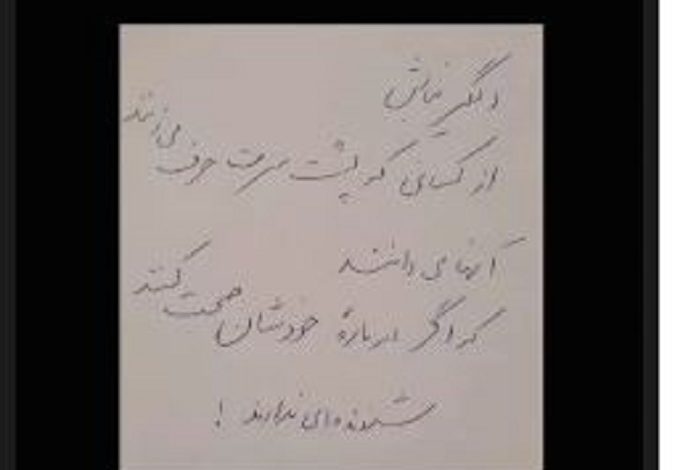 دلگیر نباش
از کسانی که پشت سرت حرف می زنند
آنها می دانند
که اگر درباره خودشان صحبت کنند
شنونده ای ندارند !